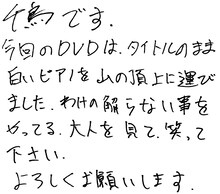 千鳥です.
今回のDVDは、タイトルのまま
白いピアノを山の頂上に運び
ました. わけの解らない事を
やってる、大人を見て、笑って
下さい.
よろしくお願いします.